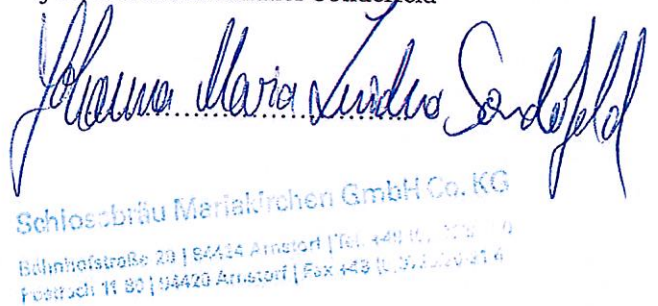 Sonderfeld
Johanna Maria Sonderfeld
Schlossbräu Mariakirchen GmbH Co. KG
Bahnhofstraße 20 | 94424 Arnstorf | Tel. +49
Postfach 11 80 | 94420 Arnstorf | Fax +49